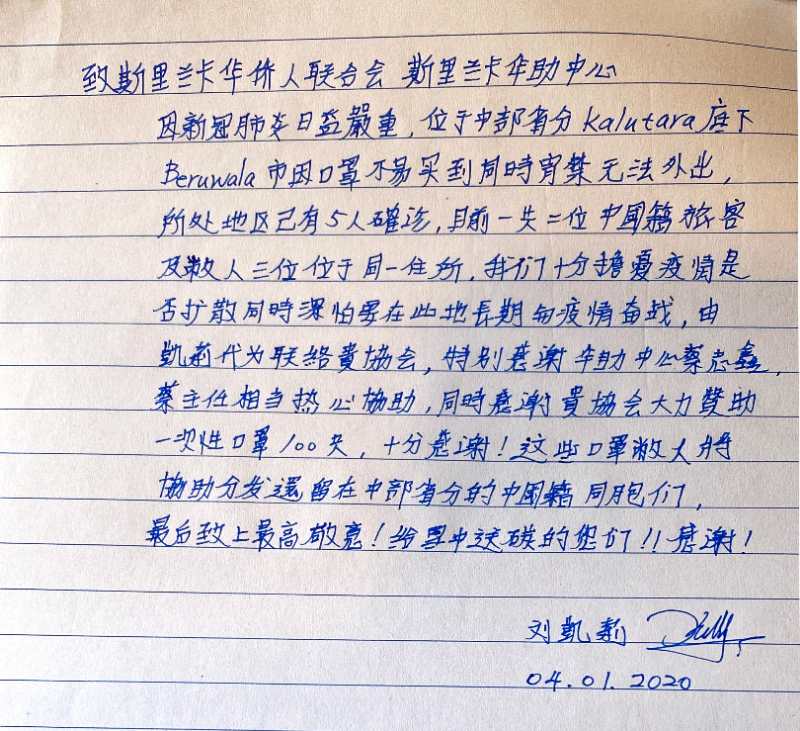 致斯里兰卡华侨人联合会 斯里兰卡华助中心
因新冠肺炎日益嚴重，位于中部省分 Kalutara 底下
Beruwala 市因口罩不易买到同時宵禁无法外出，
所处地区已有5人確诊，目前一共二位中國籍旅客
及敝人三位位于同一住所，我们十分擔憂疫情是
否扩散同時深怕要在此地長期与疫情奋战，由
凱莉代为联絡貴協会，特别感谢华助中心蔡志鑫，
蔡主任相当热心協助，同時感谢貴協会大力贊助
一次性口罩100夹，十分感谢！这些口罩敝人將
協助分发還留在中部省分的中國籍同胞们，
最后致上最高敬意！给雪中送碳的您们！！感谢！
刘凱莉
04.01.2020